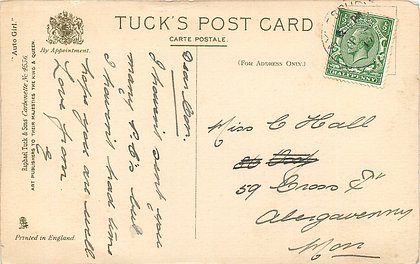 TUCK'S POST CARD
CARTE POSTALE
By Appointment.
(FOR ADDRESS ONLY.)
"Auto Girl."
Raphael Tuck & Sons' Carbonette No 4536.
ART PUBLISHERS TO THEIR MAJESTIES THE KING & QUEEN.
Printed in England.
HALFPENNY
Dear
I haven't sent you
many P.C's but
I haven't had time
hope you are well
Love from
Miss C Hall
59 Cross St
Abergavenny
Mon